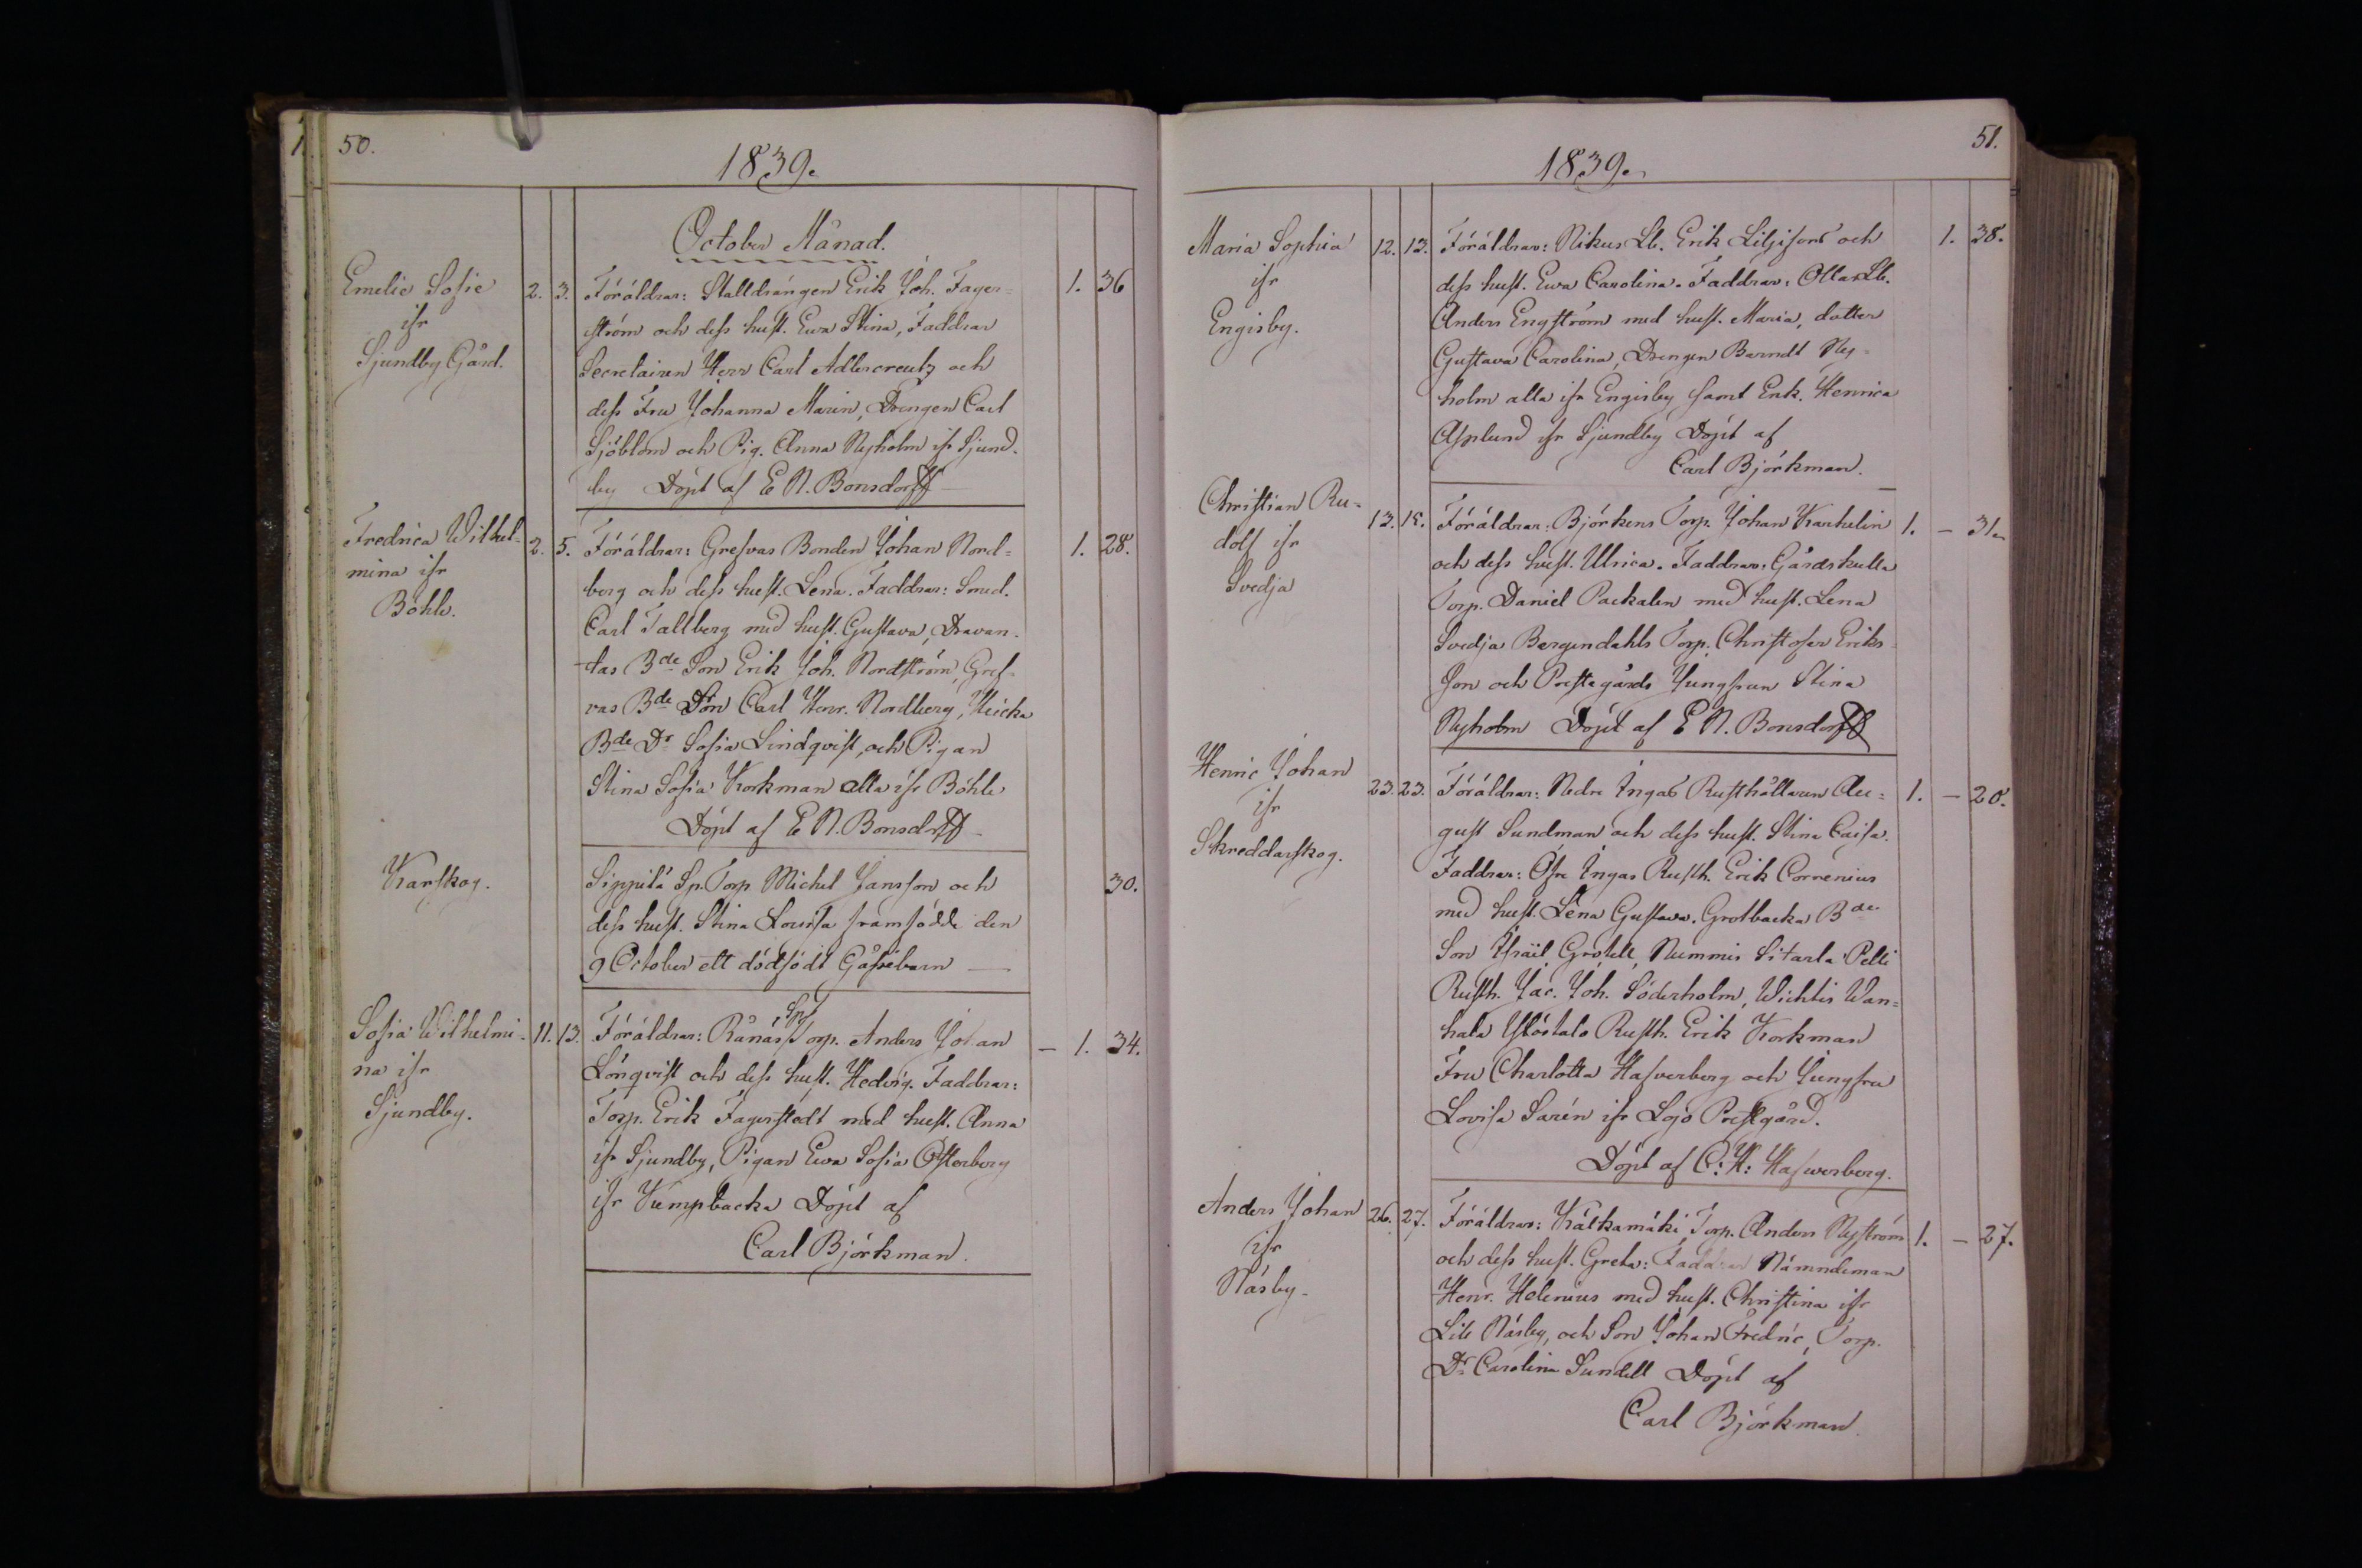 50.
1839.
October Månad.
Emelie Sofie
ifr
Sjundby Gård.
2. 3. Föräldrar: Stalldrängen Erik Joh. Fager= 1. 36
ström och dess hust. Ewa Stina, Faddrar
Secretairen Herr Carl Adlercreutz och
dess Fru Johanna Marin, Drengen Carl
Sjöblom och Pig. Anna Nyholm ifr Sjund-
by Döpt af E N. Bonsdorff
Fredrica Wilhel-
mina ifr
Böhle.
2. 5. Föräldrar: Grefvas Bonden Johan Nord= 1. 28.
berg och dess hust. Lena. Faddrar: Smed.
Carl Tallberg med hust. Gustava, Dravan-
tas Bde Son Erik Joh. Nordström, Gref-
vas Bde Son Carl Henr. Nordberg, Heicka
Bde Dr Sofia Lindqvist, och Pigan
Stina Sofia Korkman alla ifr Böhle
Döpt af E N. Bonsdorff
Karskog.
Sippilä Sp. Torp Michel Jansson och 30.
dess hust. Stina Lovisa framfödde den
9 October ett dödfödt Gåssebarn —
Sofia Wilhelmi-
na ifr
Sjundby.
11. 13. Föräldrar: Rånäs Sp Torp. Anders Johan — 1. 34.
Lönqvist och dess hust. Hedvig. Faddrar:
Torp. Erik Fagerstedt med hust. Anna
ifr Sjundby, Pigan Ewa Sofia Österberg
ifr Kumpbacka Döpt af
Carl Björkman.
51.
1839.
Maria Sophia
ifr
Engisby.
12. 13. Föräldrar: Nikus Lb. Erik Liljifors och 1. 38.
dess hust. Ewa Carolina. Faddrar: Ollas Lb.
Anders Engström med hust. Maria, dotter
Gustava Carolina, Drengen Berndt Ny-
holm alla ifr Engisby samt Enk. Henrica
Asplund ifr Sjundby Döpt af
Carl Björkman.
Christian Ru-
dolf ifr
Svedja
13. 15. Föräldrar: Björkens Torp. Johan Karhelin 1. — 31.
och dess hust. Ulrica. Faddrar: Gårdskulla
Torp. Daniel Packalen med hust. Lena
Svedja Bergendahls Torp. Christofer Eriks
Son och Prestegårds Jungfrun Stina
Nyholm Döpt af E N. Bonsdorff
Henric Johan
ifr
Skreddarskog.
23. 23. Föräldrar: Nedre Ingas Rusthållaren Au= 1. — 20.
gust Sundman och dess hust. Stina Caisa.
Faddrar: Öfre Ingas Rusth. Erik Cornenius
med hust. Lena Gustava. Grotbacka Bde
Son Israël Grotell, Nummis Sitarla Pelli
Rusth. Jac. Joh. Söderholm, Wichtis Wan=
hala Rusth. Erik Korkman
Fru Charlotta Hasverberg och Jungfru
Lovisa Sarén ifr Lojo Prestgård.
Döpt af C: H: Haswerberg.
Anders Johan
ifr
Näsby.
26. 27. Föräldrar: Kälkamäki Torp. Anders Nyström 1. — 27.
och dess hust. Greta: Faddrar Nämndeman
Henr. Helenius med hust. Christina ifr
Lill Näsby, och Son Johan Fredric, Torp.
Dr Carolina Sundell Döpt af
Carl Björkman.